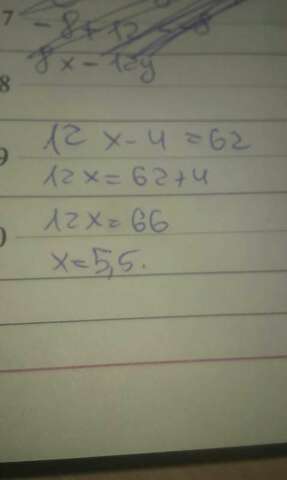 7
8x-12y
8
12x-4=62
9
12x=62+4
12x=66
x=5,5.